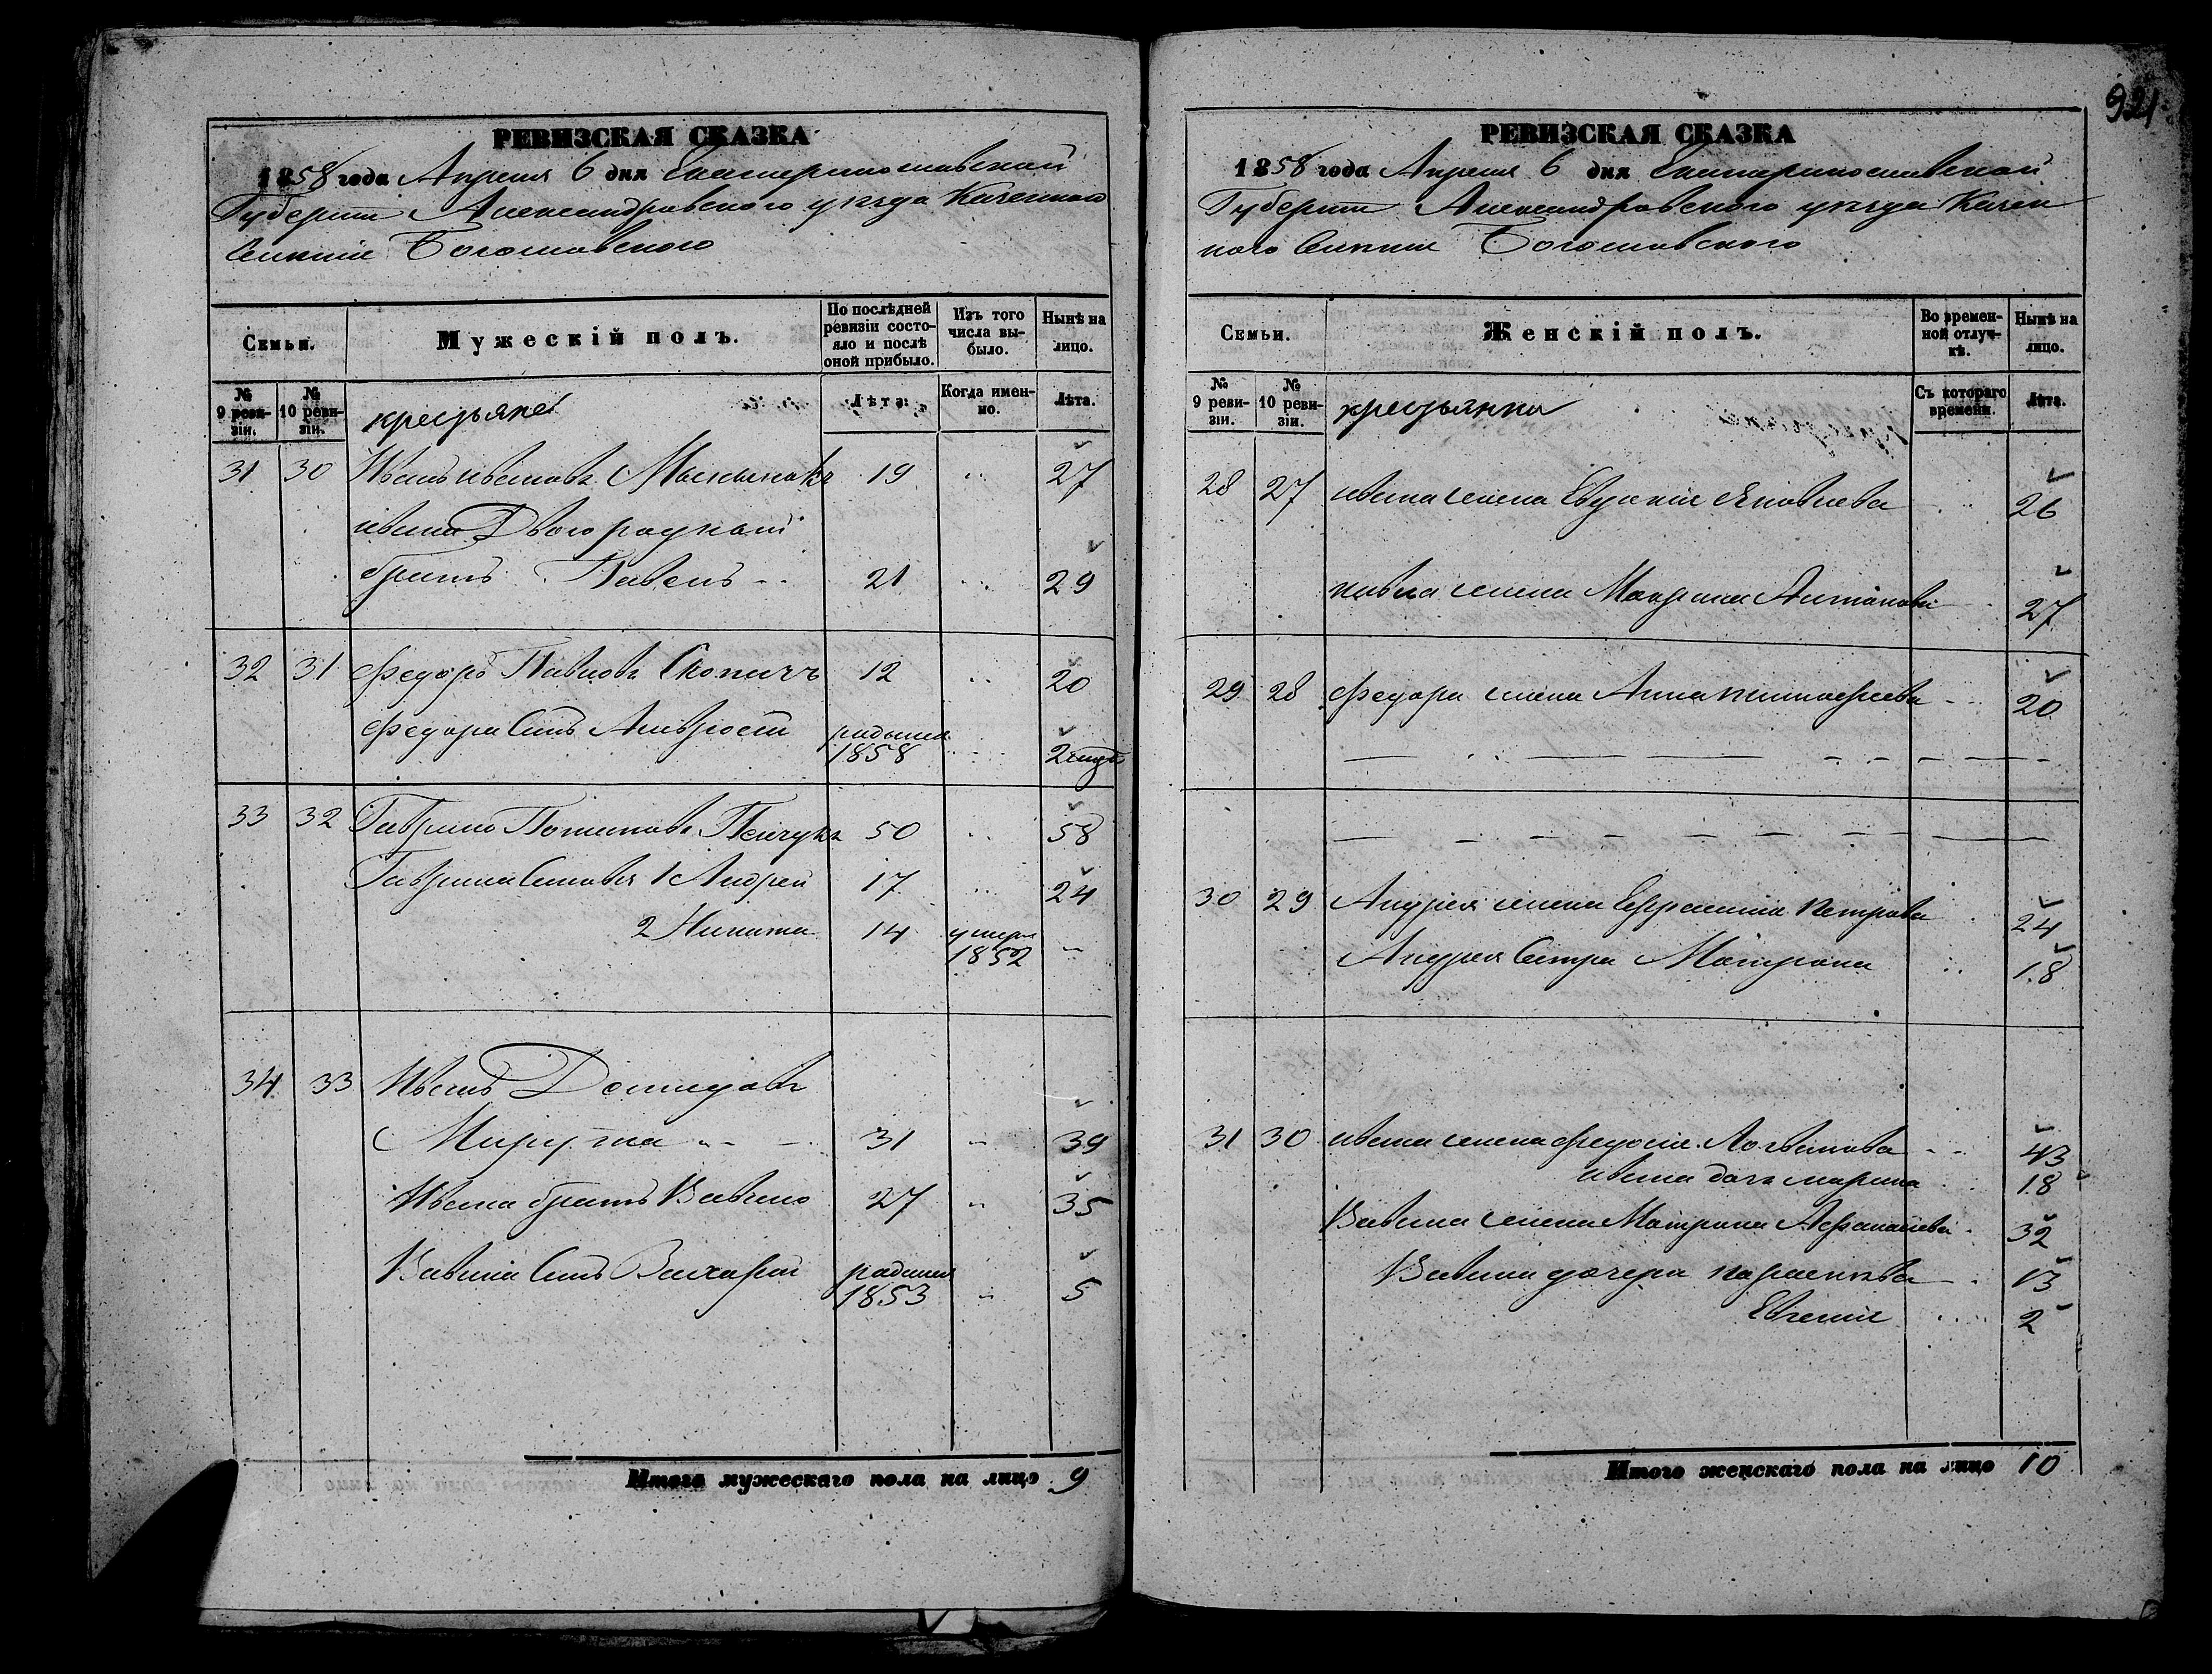 РЕВИЗСКАЯ СКАЗКА
1858 года Апреля 6 дня Екатеринославской
Губернии Александровского уезда Казенного
Селения Богословского
Семьи.
Мужескій полъ.
По послѣдней ревизіи состояло и послѣ оной прибыло.
Изъ того числа выбыло.
Нынѣ на лицо.
№ 9 ревизіи.
№ 10 ревизіи.
крестьяне
Лѣта.
Когда именно.
Лѣта.
31 30 Иванъ Ивановъ 19 27
Ивана Двоюродный
братъ Павелъ 21 29
32 31 Федоръ Павловъ Скопичъ 12 20
Федора Сынъ Амвросій родился 1858 2
33 32 Гаврило Потаповъ 50 58
Гаврила Сыновья 1 Андрей 17 24
2 Никита 14 умеръ 1852
34 33 Иванъ Демидовъ
31 39
Ивана братъ Вавило 27 35
Вавила Сынъ Захарій родился 1853 5
Итого мужескаго пола на лицо 9
921
РЕВИЗСКАЯ СКАЗКА
1858 года Апреля 6 дня Екатеринославской
Губернии Александровского уезда Казен
ного Селения Богословского
Семьи.
Женскій полъ.
Во временной отлучкѣ.
Нынѣ на лицо.
№ 9 ревизіи.
№ 10 ревизіи.
крестьянки
Съ котораго времени.
Лѣта.
28 27 Ивана жена Евдокия Яковлева 26
Павла жена Марина Антонова 27
29 28 Федора жена Анна Тимофеева 20
30 29 Андрея жена Ефросинья Петрова 24
Андрея Сестра Матрона 18
31 30 Ивана жена Федосия Логвинова 43
Ивана дочь Марина 18
Вавила жена Матрона Афанасиева 32
Вавила дочери Парасковья 13
Евгения 2
Итого женскаго пола на лицо 10